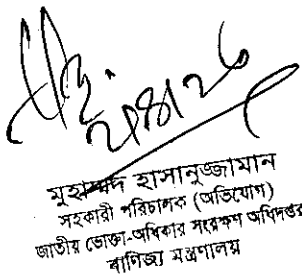 মুহাম্মদ হাসানুজ্জামান
সহকারী পরিচালক (অভিযোগ)
জাতীয় ভোক্তা-অধিকার সংরক্ষণ অধিদপ্তর
বাণিজ্য মন্ত্রণালয়